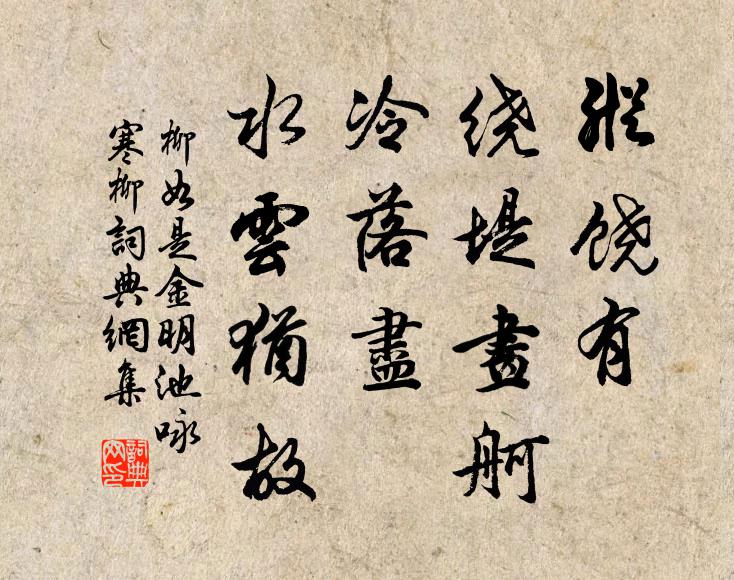 縱饶有
绕堤畫舸
冷落盡
水雲猶故
柳如是金明池咏
寒柳詞典網集
詞典网印